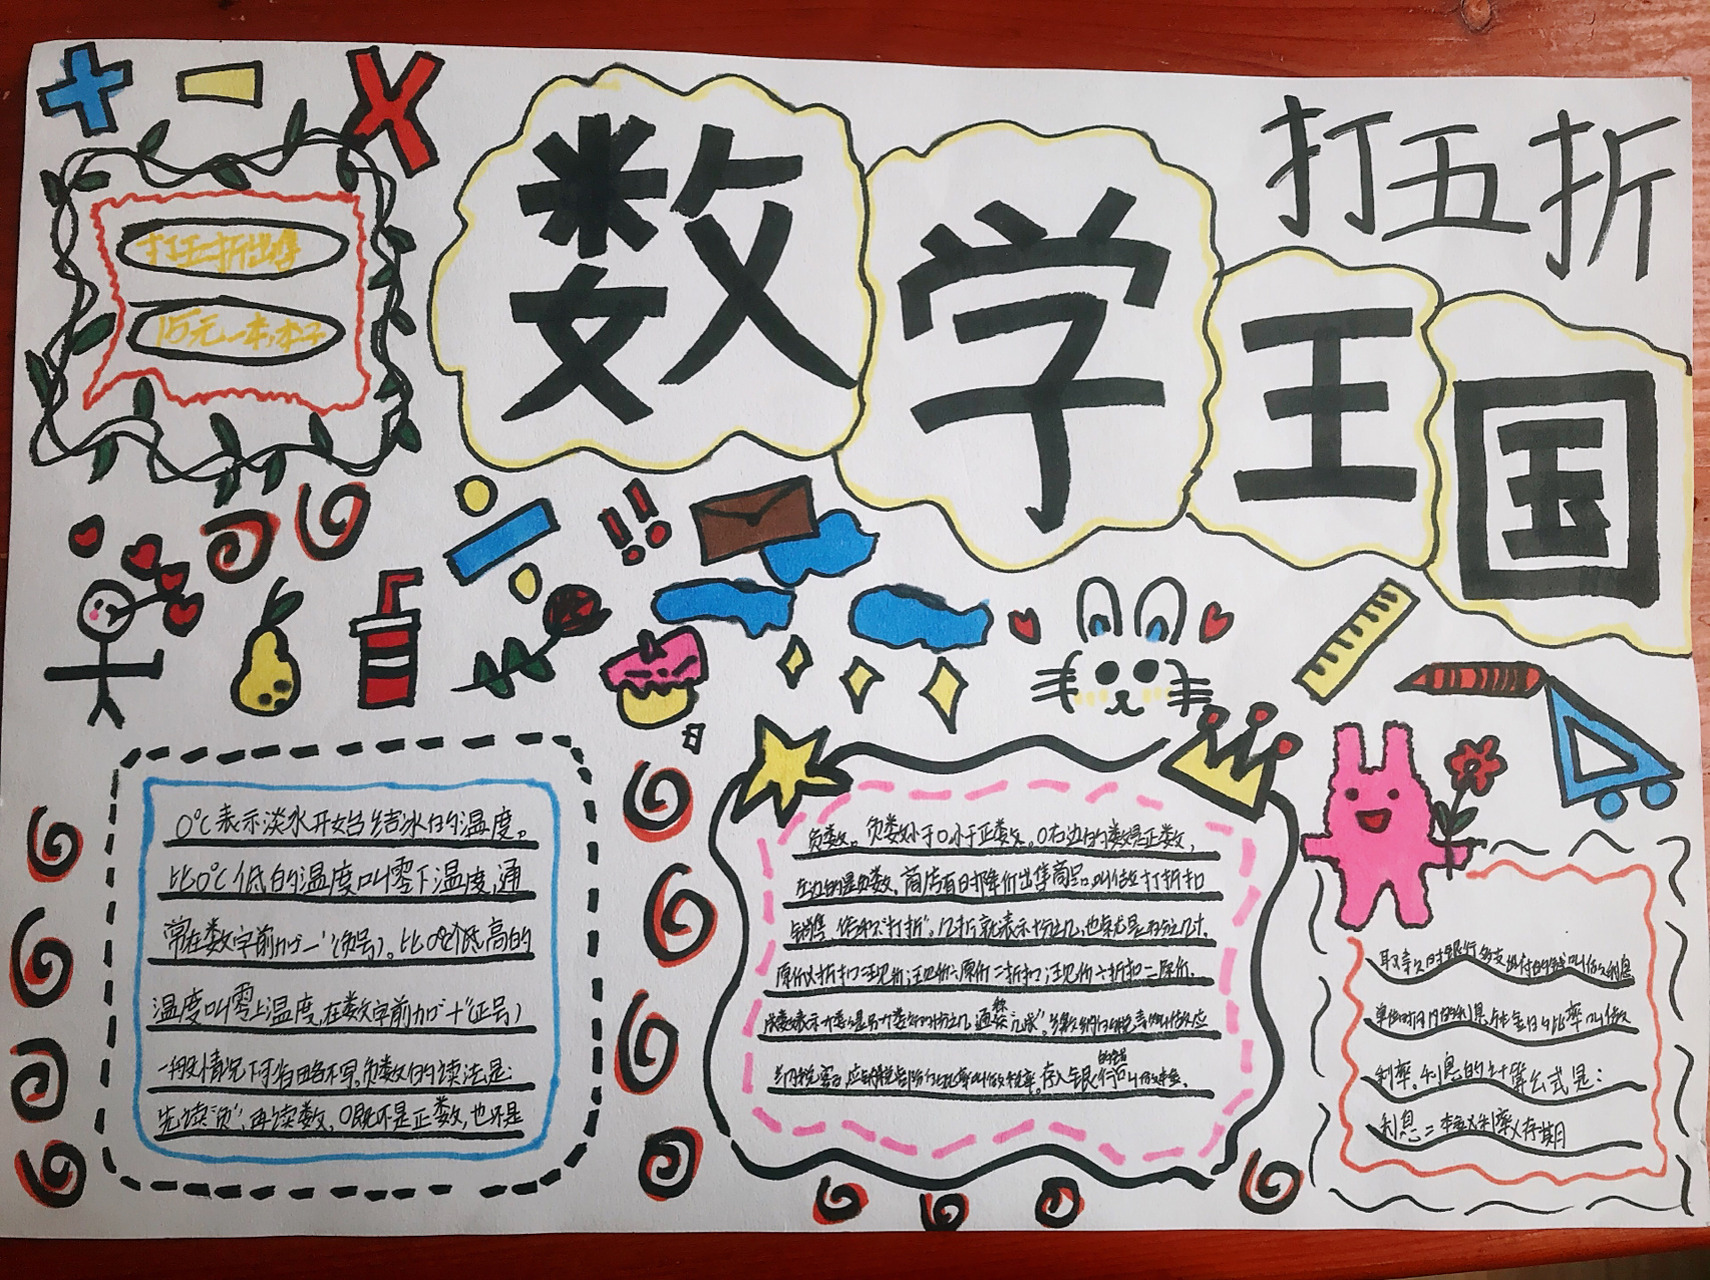 数学王国
打五折
打五折出售
15元一本,本子
0℃表示淡水开始结冰的温度。
比0℃低的温度叫零下温度,通
常在数字前加"-"(负号)。比0℃高的
温度叫零上温度,在数字前加"+"(正号)
一般情况下可省略不写。负数的读法是:
先读"负",再读数,0既不是正数,也不是
负数。负数小于0小于正数。0右边的数是正数,
左边的是负数。商店有时降价出售商品,叫做打折扣
销售,俗称"打折"。几折就表示十分之几,也就是百分之几十。
原价×折扣=现价,现价÷原价=折扣,现价÷折扣=原价。
存入银行的钱叫做本金。
取款时银行多支付的钱叫做利息
单位时间内的利息与本金的比率叫做
利率。利息的计算公式是:
利息=本金×利率×存期